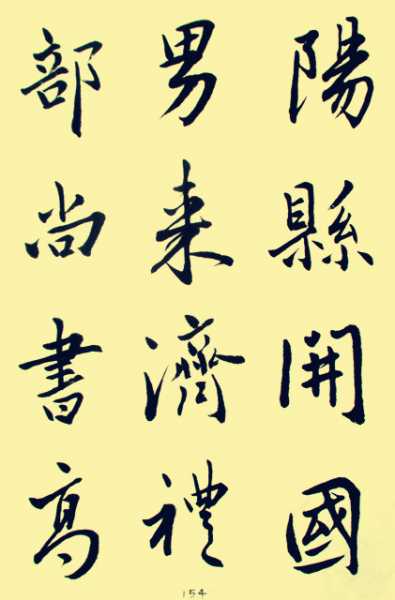 陽縣開國
男来濟禮
部尚書高
154